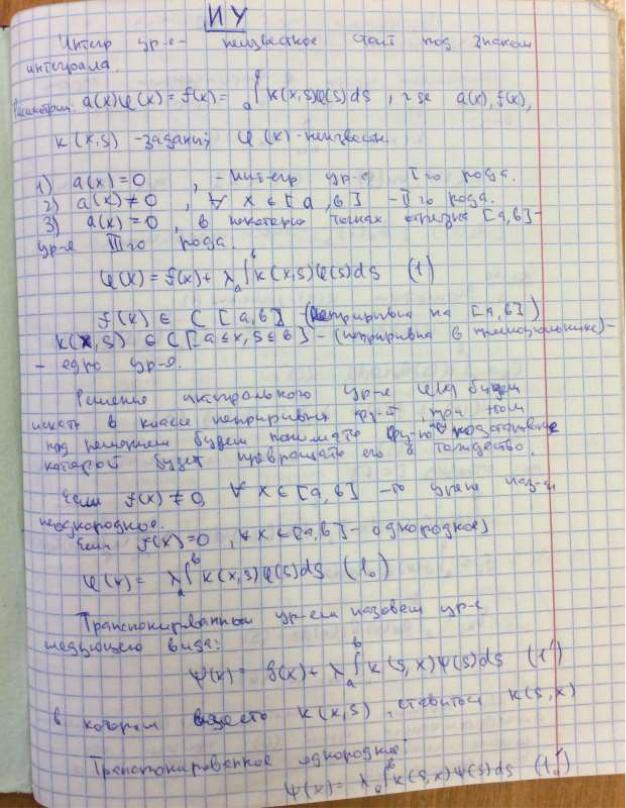 ИУ
Интегр ур-е - неизвестное стоит под знаком
интеграла.
a(x)φ(x) = f(x) = ₐ∫ᵇ K(x,s)φ(s)ds, где a(x), f(x),
K(x,s) - задани; φ(x) - неизвестн.
1) a(x) = 0, - интегр ур-е I го рода.
2) a(x) ≠ 0, ∀ x ∈ [a, b] - II го рода.
3) a(x) = 0, в некоторо точках отрезка [a,b] -
ур-е III го рода.
φ(x) = f(x) + λ ₐ∫ᵇ K(x,s)φ(s)ds (1)
f(x) ∈ C [a,b] (неприрывна на [a,b])
K(x,s) ∈ C[a≤x,s≤b] - (неприрывна в) -
- ядро ур-я.
Решение интегрального ур-я будем
искать в классе неприрывн фу-й, при этом
под решением будем понимать фу-ю подстановка
которой будет превращать его в тождество.
Если f(x) ≠ 0, ∀ x ∈ [a, b] - то ур-е наз-ся
неоднородное.
Если f(x) = 0, ∀x ∈ [a,b] - однородное)
φ(x) = λ ₐ∫ᵇ K(x,s)φ(s)ds (1₀)
Транспонированным ур-ем назовем ур-е
следующего вида:
ψ(x) = g(x) + λ ₐ∫ᵇ K(s,x)ψ(s)ds (1')
в котором вместо K(x,s), ставится K(s,x)
Транспонированное однородное:
ψ(x) = λ ₐ∫ᵇ K(s,x)ψ(s)ds (1₀')